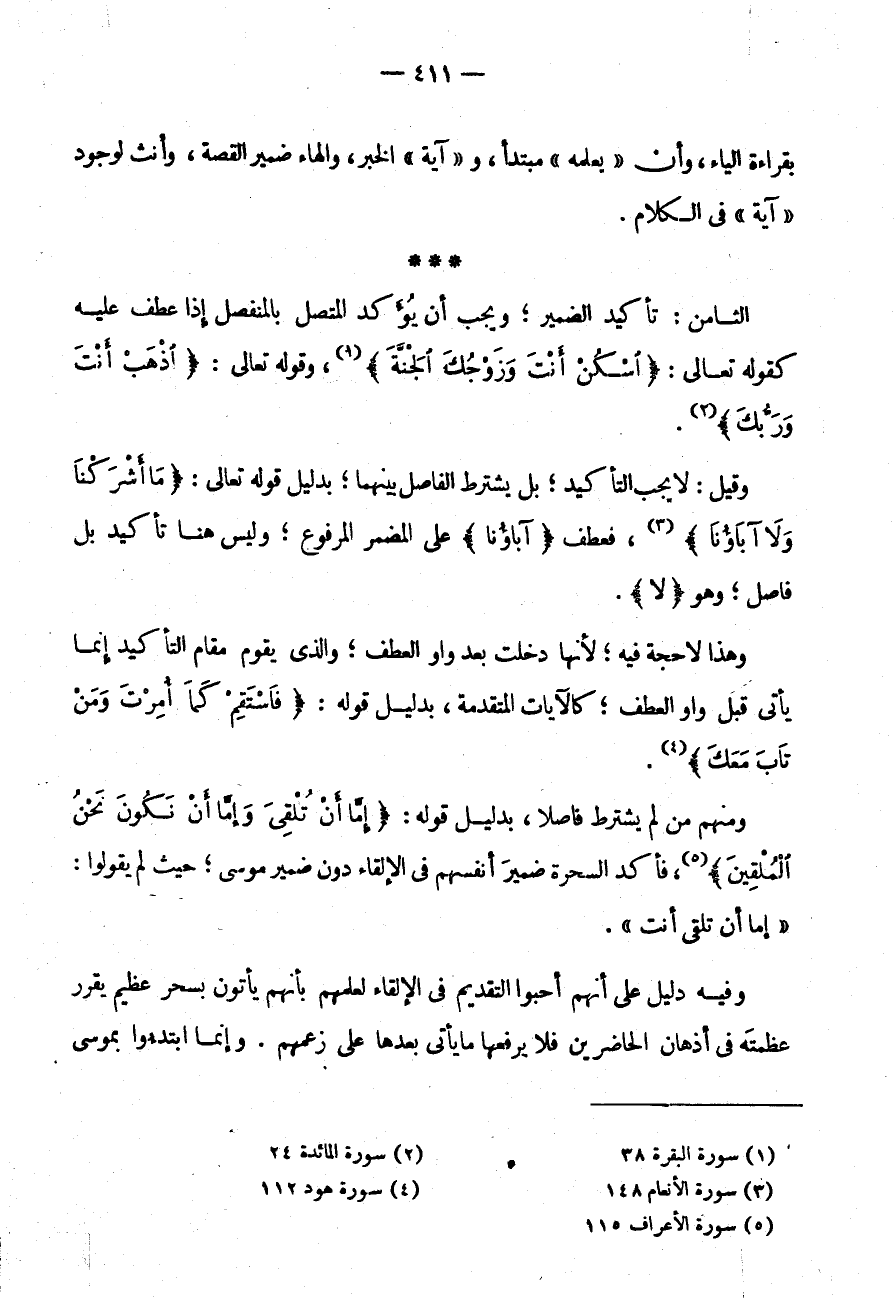 — ٤١١ —
بقراءة الياء، وأن « يعلمه » مبتدأ، و « آية » الخبر، والهاء ضمير القصة، وأنث لوجود
« آية » فى الكلام .
***
الثامن : تأكيد الضمير ؛ ويجب أن يُؤكد المتصل بالمنفصل إذا عطف عليه
كقوله تعالى : ﴿ ٱسْكُنْ أَنْتَ وَزَوْجُكَ ٱلجَنَّةَ ﴾(١) ، وقوله تعالى : ﴿ ٱذْهَبْ أَنْتَ
وَرَبُّكَ ﴾(٢) .
وقيل : لا يجب التأكيد ؛ بل يشترط الفاصل بينهما ؛ بدليل قوله تعالى : ﴿ مَا أَشْرَكْنَا
وَلَا آبَاؤُنَا ﴾ (٣) ، فعطف ﴿ آباؤنا ﴾ على المضمر المرفوع ؛ وليس هنا تأكيد بل
فاصل ؛ وهو ﴿ لا ﴾ .
وهذا لا حجة فيه ؛ لأنها دخلت بعد واو العطف ؛ والذى يقوم مقام التأكيد إنما
يأتى قبل واو العطف ؛ كالآيات المتقدمة ، بدليل قوله : ﴿ فَاسْتَقِمْ كَمَا أُمِرْتَ وَمَنْ
تَابَ مَعَكَ ﴾(٤) .
ومنهم من لم يشترط فاصلا ، بدليل قوله : ﴿ إِمَّا أَنْ تُلْقِىَ وَإِمَّا أَنْ نَكُونَ نَحْنُ
ٱلْمُلْقِينَ ﴾(٥)، فأكد السحرة ضميرَ أنفسهم فى الإلقاء دون ضمير موسى ؛ حيث لم يقولوا :
« إما أن تلقى أنت » .
وفيه دليل على أنهم أحبوا التقديم فى الإلقاء لعلمهم بأنهم يأتون بسحر عظيم يقرر
عظمتَه فى أذهان الحاضرين فلا يرفعها ما يأتى بعدها على زعمهم . وإنما ابتدءوا بموسى
(١) سورة البقرة ٣٨ (٢) سورة المائدة ٢٤
(٣) سورة الأنعام ١٤٨ (٤) سورة هود ١١٢
(٥) سورة الأعراف ١١٥